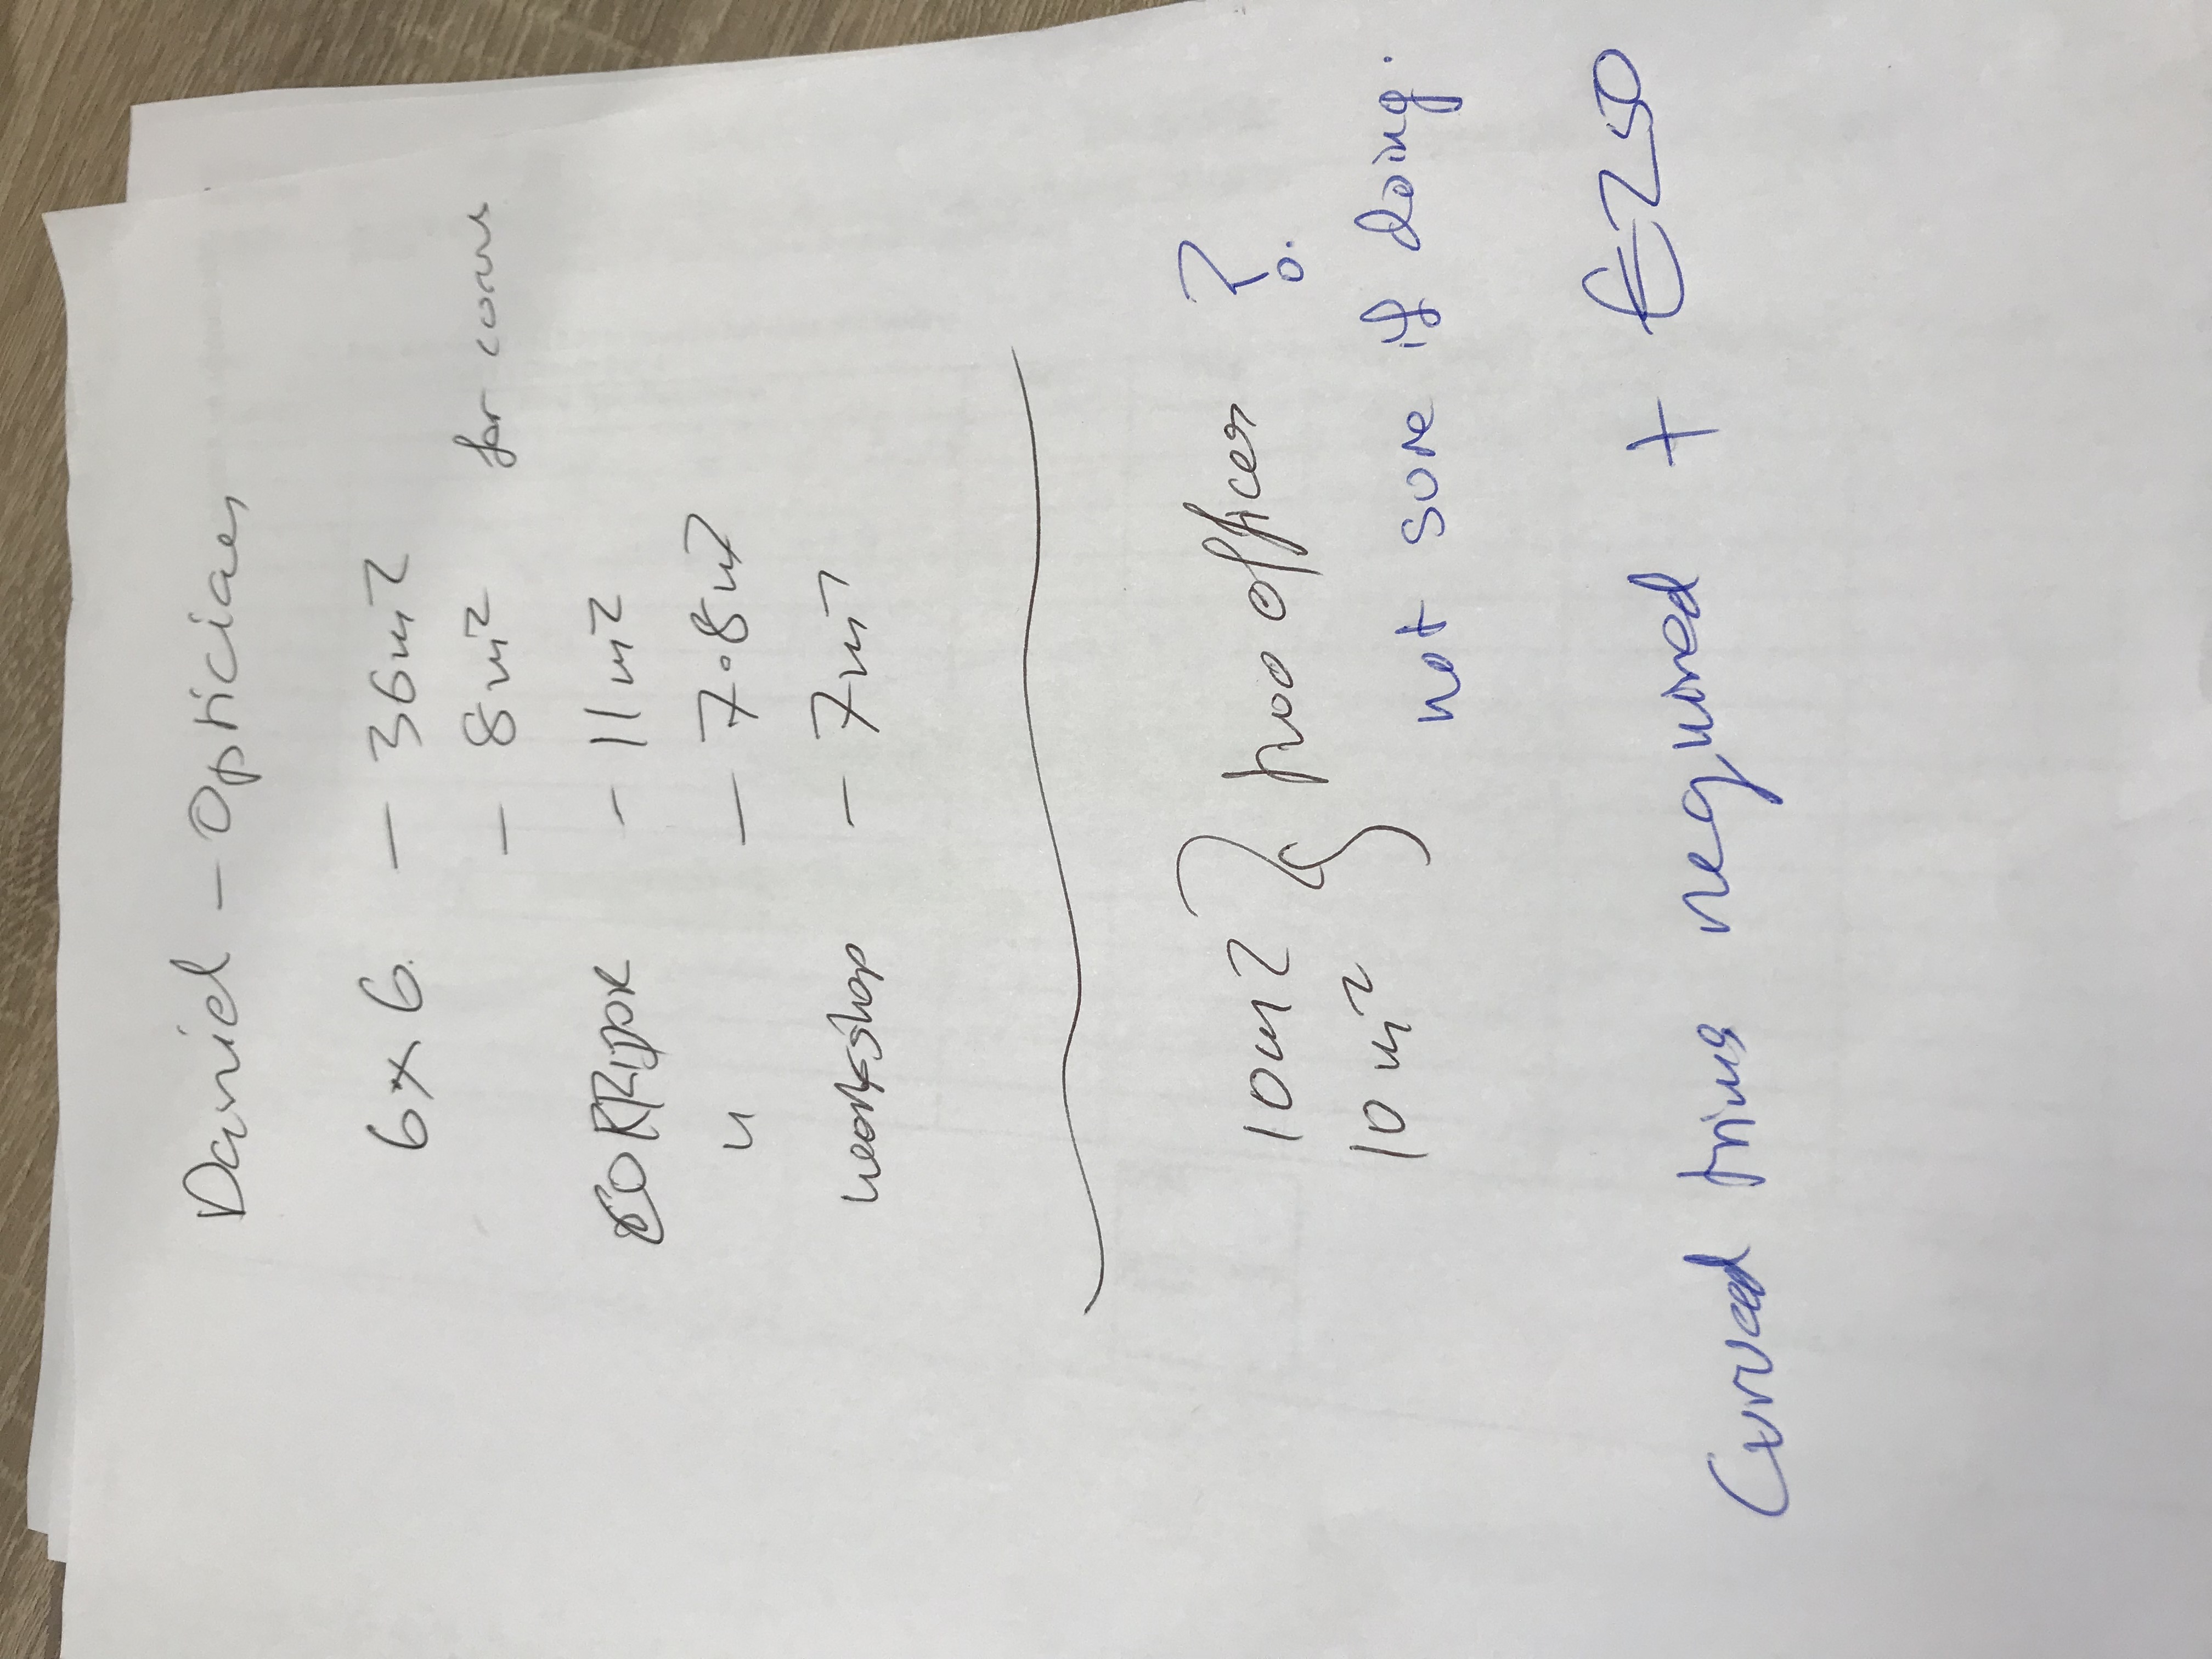 Daniel - Opticians
6x6. - 36m2
- 8m2 for cons
- 11m2
" - 7.8m2
workshop - 7m2
10m2 } two offices ?
10m2 not sure if doing.
Curved trims required + £250